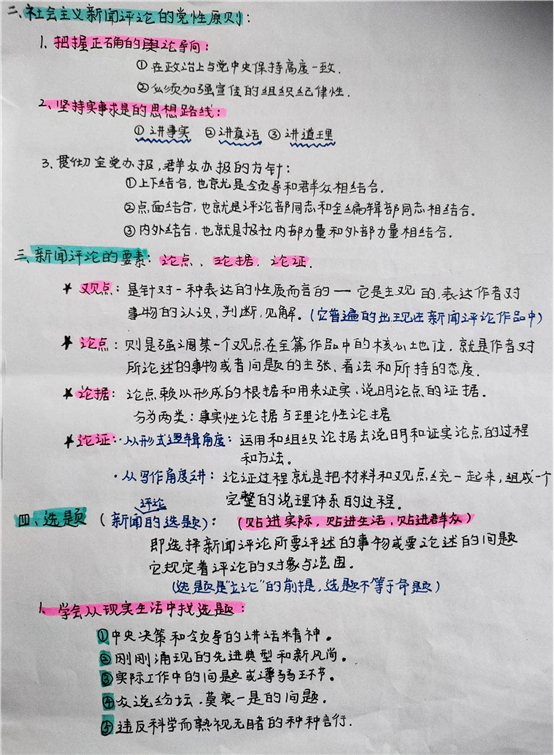 二、社会主义新闻评论的党性原则：
1. 把握正确的舆论导向：
① 在政治上与党中央保持高度一致.
② 必须加强宣传的组织纪律性.
2. 坚持实事求是的思想路线：
① 讲事实 ② 讲真话 ③ 讲道理
3. 贯彻全党办报, 群众办报的方针：
① 上下结合, 也就是领导和群众相结合.
② 点面结合, 也就是评论部同志和全编辑部同志相结合.
③ 内外结合, 也就是报社内部力量和外部力量相结合.
三、新闻评论的要素：论点、论据、论证.
★ 观点：是针对一种表达的性质而言的 —— 它是主观的, 表达作者对
事物的认识, 判断, 见解. (它普遍的出现在新闻评论作品中)
★ 论点：则是强调某一个观点在全篇作品中的核心地位, 就是作者对
所论述的事物或者问题的主张、看法和所持的态度.
★ 论据：论点赖以形成的根据和用来证实、说明论点的证据.
分为两类：事实性论据与理论性论据
★ 论证：· 从形式逻辑角度：运用和组织论据去说明和证实论点的过程
和方法。
· 从写作角度讲：论证过程就是把材料和观点统一起来, 组成一个
完整的说理体系的过程.
评论
四、选题 (新闻的选题)：(贴进实际, 贴进生活, 贴进群众)
即选择新闻评论所要评述的事物或要论述的问题
它规定着评论的对象与范围.
(选题是"立论"的前提, 选题不等于命题)
1. 学会从现实生活中找选题：
① 中央决策和领导的讲话精神。
② 刚刚涌现的先进典型和新风尚。
③ 实际工作中的问题或薄弱环节。
④ 众说纷坛, 莫衷一是的问题.
⑤ 违反科学而熟视无睹的种种言行.